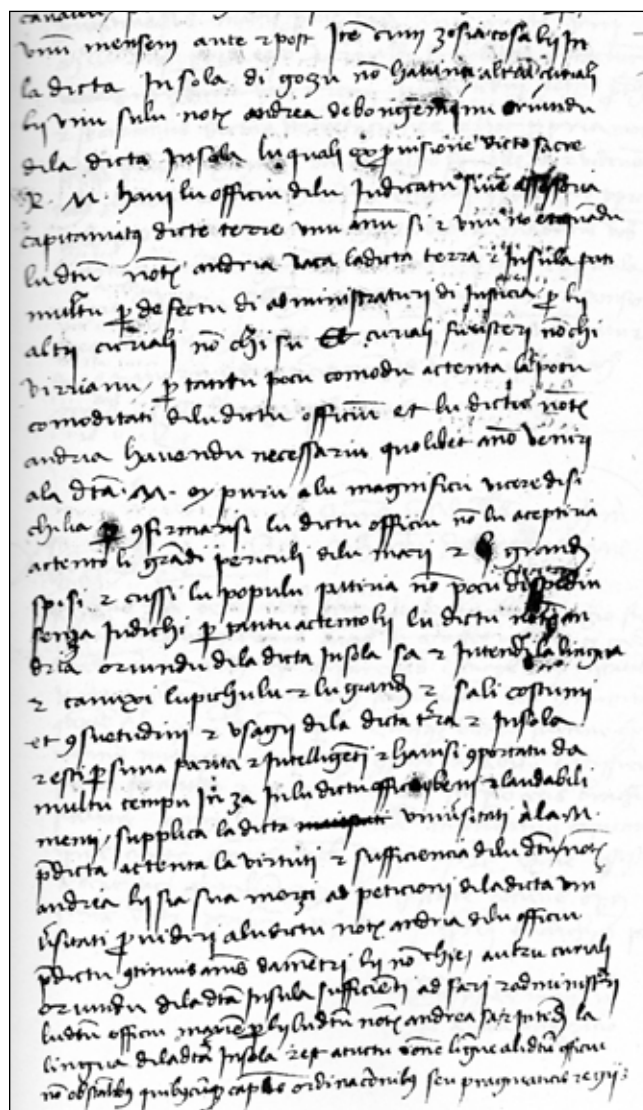 unu mensem ante et post Itē cum zosia cosa ki In
la dicta Insola di gozu nō havirā altru curiali
ki unu sulu notr andrea de bongemīnu oriundu
di la dicta Insola lu quali ex provisione dicte sacre
R. M. havi lu officiu di lu Iudicatu sive assessoria
capitaniatus dicte terre unu annu si et unu no et quādu
lu dtu notr andria vaca la dicta terra et Insula pati
multu p defectu di administraturi di Iusticia p ki
altri curiali nō chi su Et curiali furisteri nō chi
virrianu p tantu pocu comodu actenta la poca
comoditati di lu dictu officiu et lu dictu notr
andria havendu necessariu quolibet anno veniri
a la dta M. oy puru a lu magnificu vicere di si
chilia p 9firmarisi lu dictu officiu nō lu aceptiria
actento li grādi periculi di lu mari et li grandi
spisi et cussi lu populu patiria nō pocu disipdiu
senza Iudichi p tantu actento ki lu dictu notr an
dria oriundu di la dicta Insola sa et Intendi la lingua
et canuxi lu pichulu et lu grandi et sali costumi
et 9suetudini et usagii di la dicta tra et Insola
et esti psuna parita et Intelligēti et havisi 9portatu da
multu tempu In za In lu dictu officio beni et laudabili
menti, supplica la dicta univsitati a la M.
pdicta actenta la virtuti et sufficiencia di lu dtu notr
andrea ki sia sua merzi ad peticioni di la dicta uni
vsitati pvidiri a lu dictu notr andria di lu officiu
pdictu 9tinuis annis dametri ki nō chi e, autru curiali
oriundu di la dta Insula sufficienti ad fari et administrari
lu dtu officiu maxie p ki lu dtu notr andrea sa et intidi la
lingua di la dta Insola et est aructu
nō obstatibus quibuscuqz capitlis ordinacionibus seu pragmaticis regiis